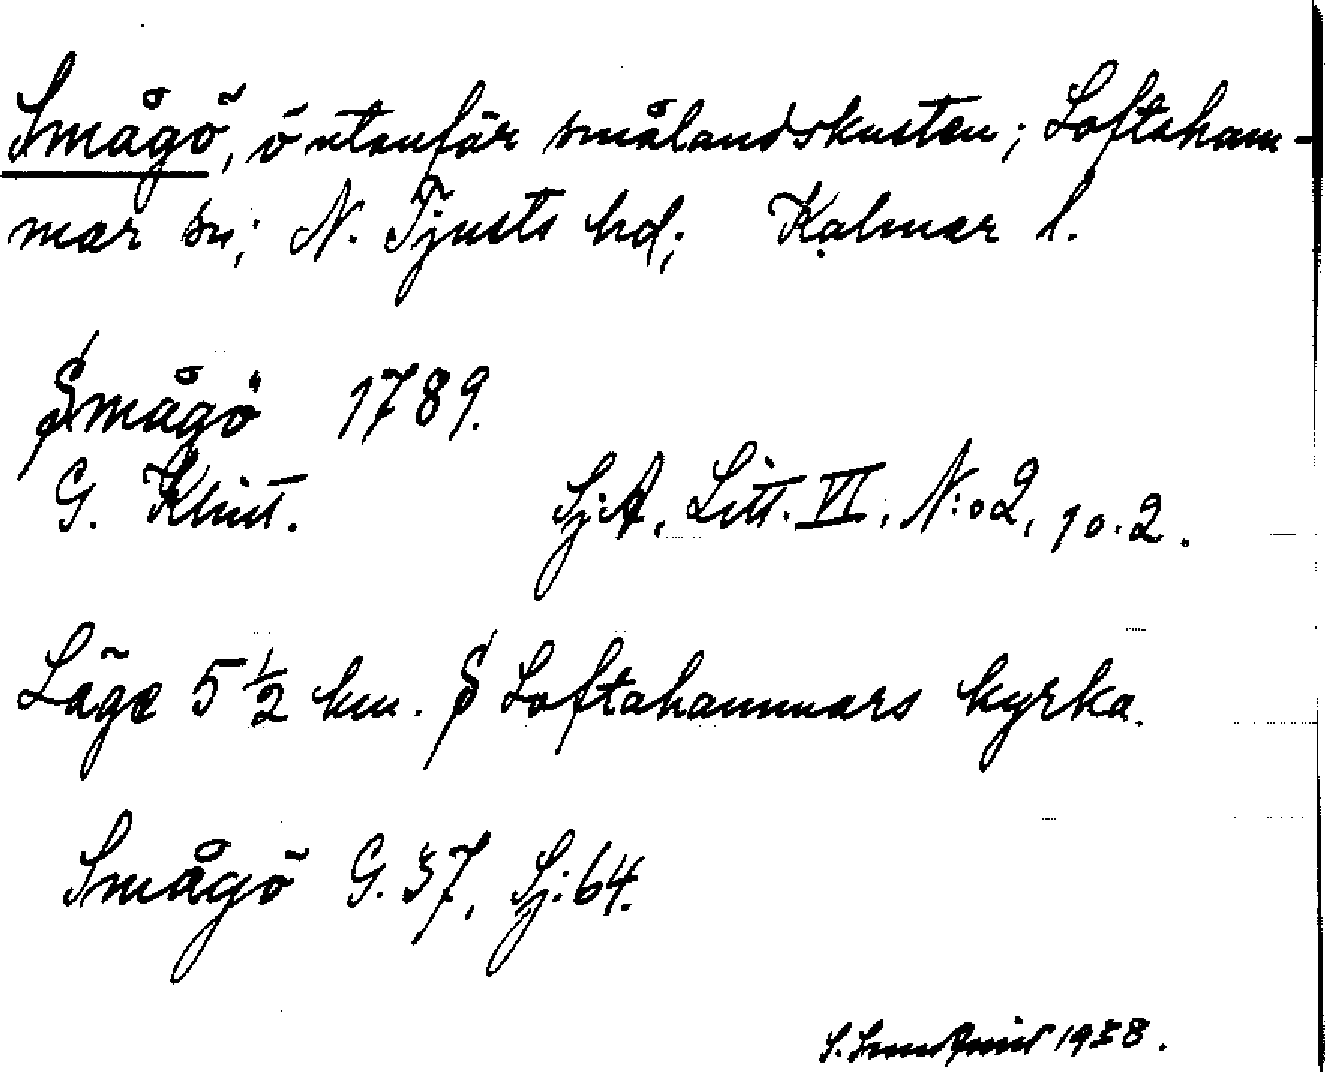 Smågö, ö utanför smålandskusten; Loftaham-
mar sn; N. Tjusts hd; Kalmar l.
Smågö 1789.
G. Klint. SjA, Litt. VI, N:o 2, 10.2.
Läge 5 1/2 km. S Loftahammars kyrka.
Smågö G. 37, Sj: 64.
S. 1938.